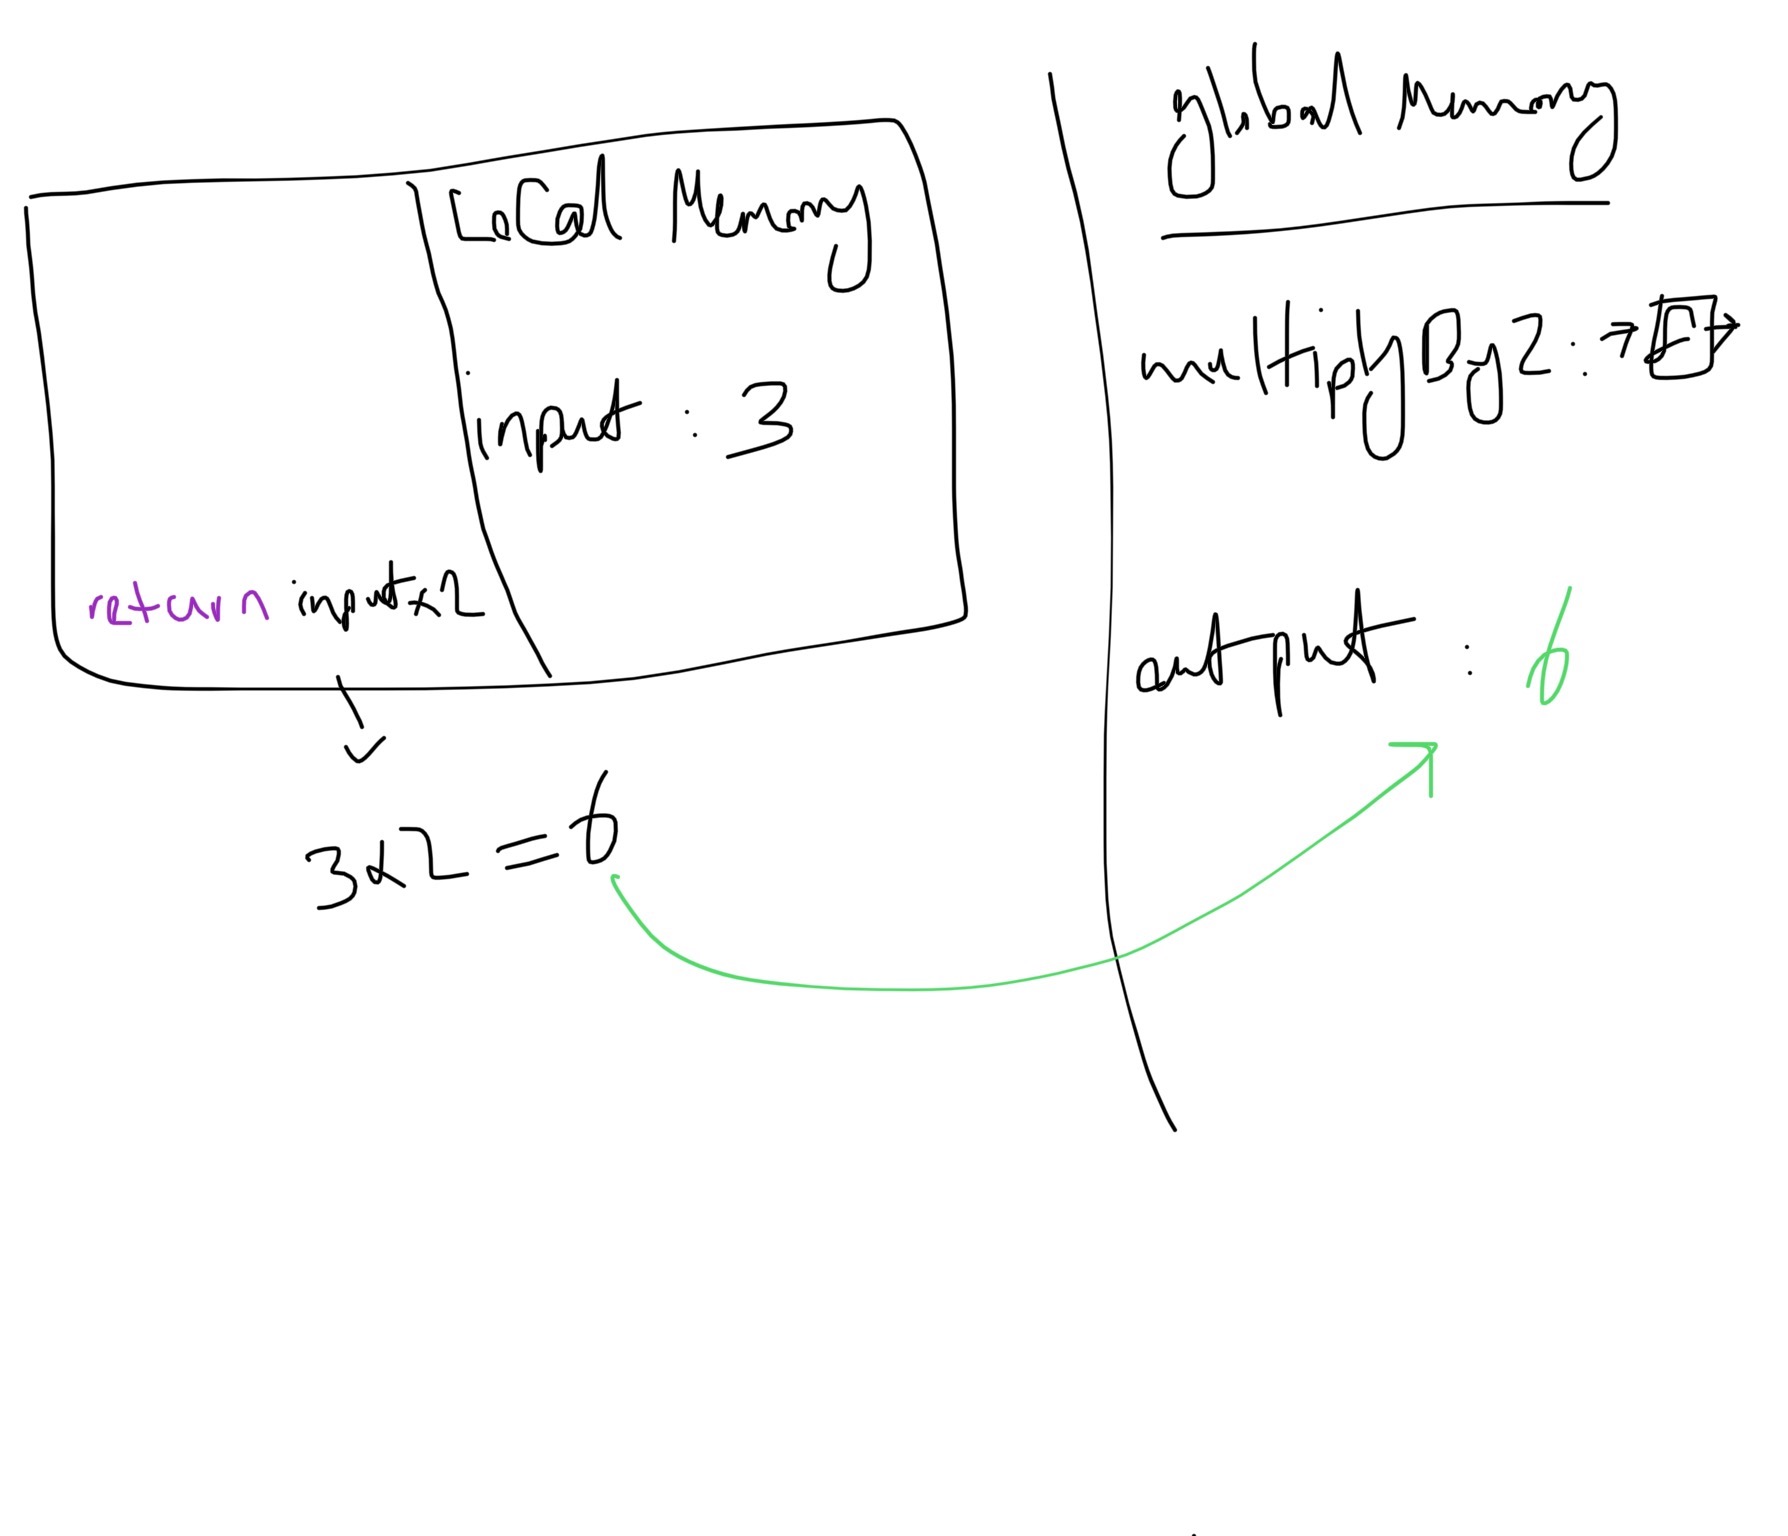 Local Memory
input : 3
return input x 2
3 x 2 = 6
global Memory
multiplyBy2 : → F →
output : 6